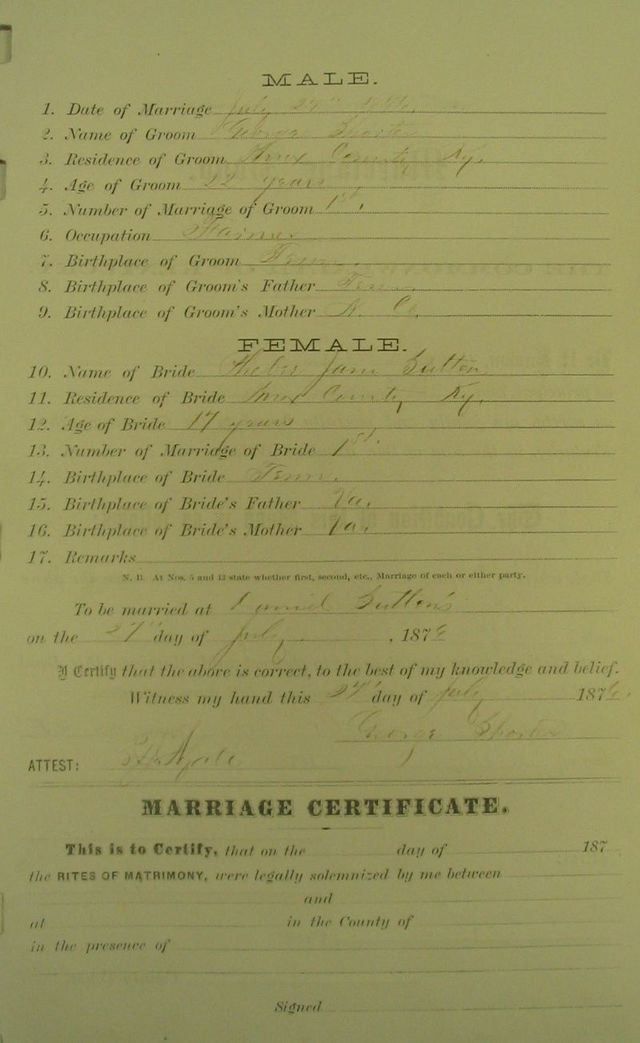 MALE.
1. Date of Marriage July 27th 1876
2. Name of Groom George Shorter
3. Residence of Groom Knox County Ky.
4. Age of Groom 22 years
5. Number of Marriage of Groom 1st.
6. Occupation Farmer
7. Birthplace of Groom Tenn.
8. Birthplace of Groom's Father Tenn.
9. Birthplace of Groom's Mother N. Ca.
FEMALE.
10. Name of Bride Jane Sutton
11. Residence of Bride Knox County Ky.
12. Age of Bride 17 years
13. Number of Marriage of Bride 1st.
14. Birthplace of Bride Tenn.
15. Birthplace of Bride's Father Va.
16. Birthplace of Bride's Mother Va.
17. Remarks
N. B. At Nos. 5 and 13 state whether first, second, etc., Marriage of each or either party.
To be married at Daniel Sutton's
on the 27th day of July, 1876
I Certify that the above is correct, to the best of my knowledge and belief.
Witness my hand this day of July 1876.
George Shorter
ATTEST:
MARRIAGE CERTIFICATE.
This is to Certify, that on the day of 187
the RITES OF MATRIMONY, were legally solemnized by me between
and
at in the County of
in the presence of
Signed